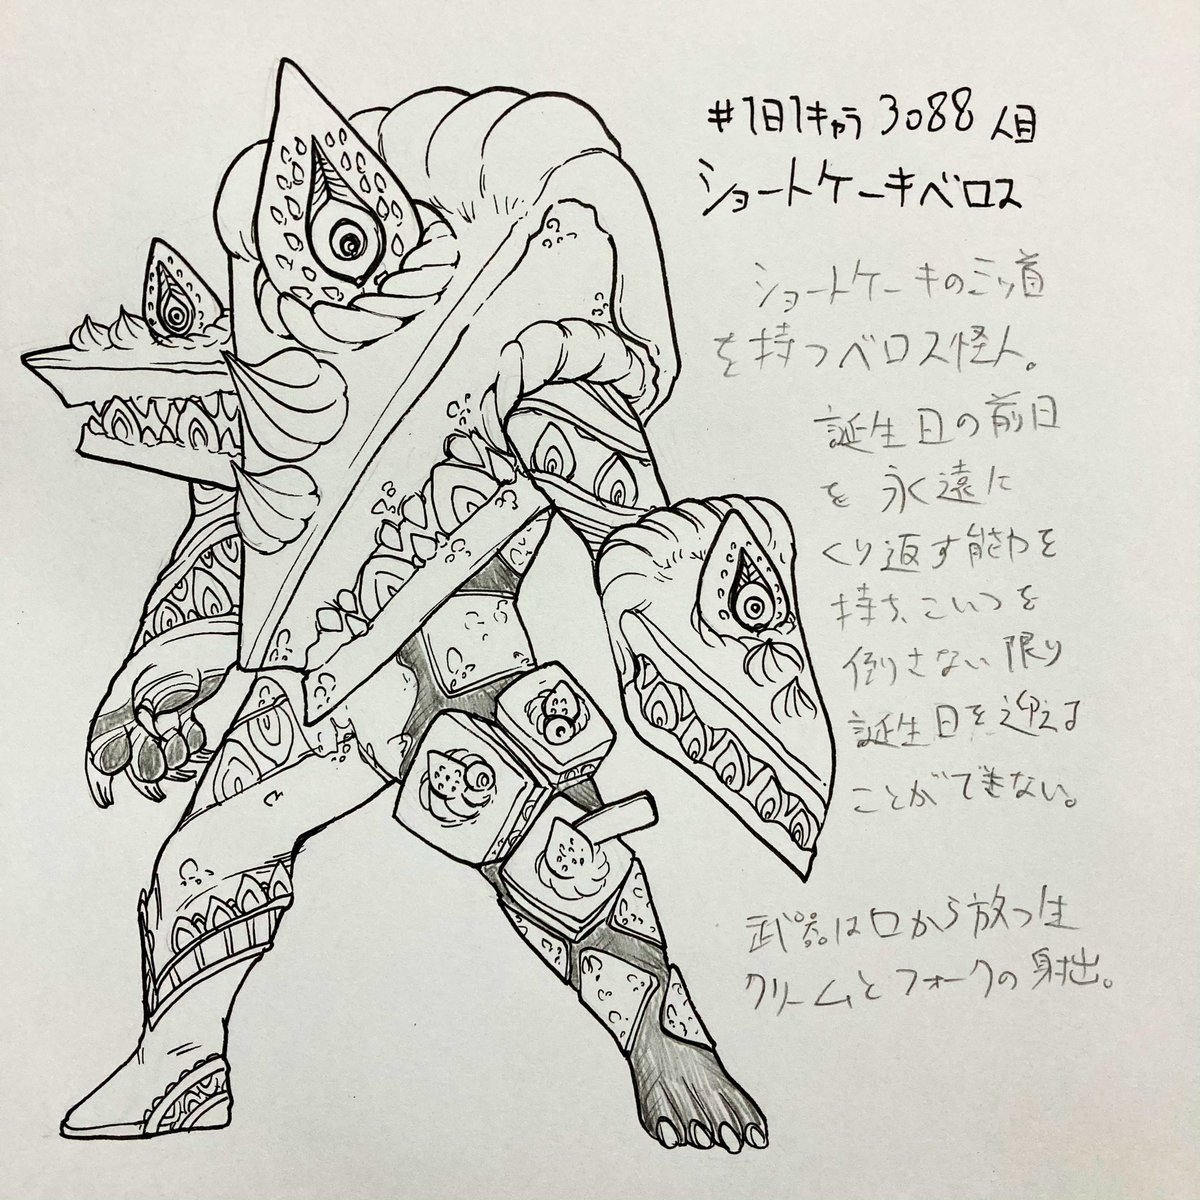 #1日1キャラ 3088人目
ショートケーキベロス
ショートケーキの三ツ首
を持つベロス怪人。
誕生日の前日
を永遠に
くり返す能力を
持ち、こいつを
倒さない限り
誕生日を迎える
ことができない。
武器は口から放つ生
クリームとフォークの射出。